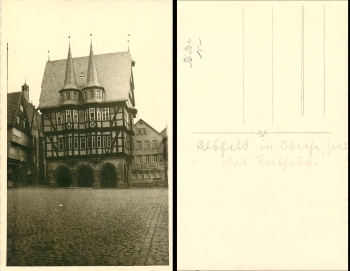 Alsfeld in Oberhessen
das Rathaus.